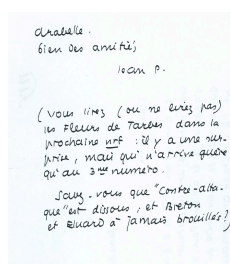 arabelle.
bien des amitiés,
Jean P.
(vous lirez (ou ne lirez pas)
les Fleurs de Tarbes dans la
prochaine nrf : il y a une sur-
prise, mais qui n'arrive guère
qu'au 3me numéro.
Savez-vous que "Contre-atta-
que" est dissous, et Breton
et Eluard à jamais brouillés?)